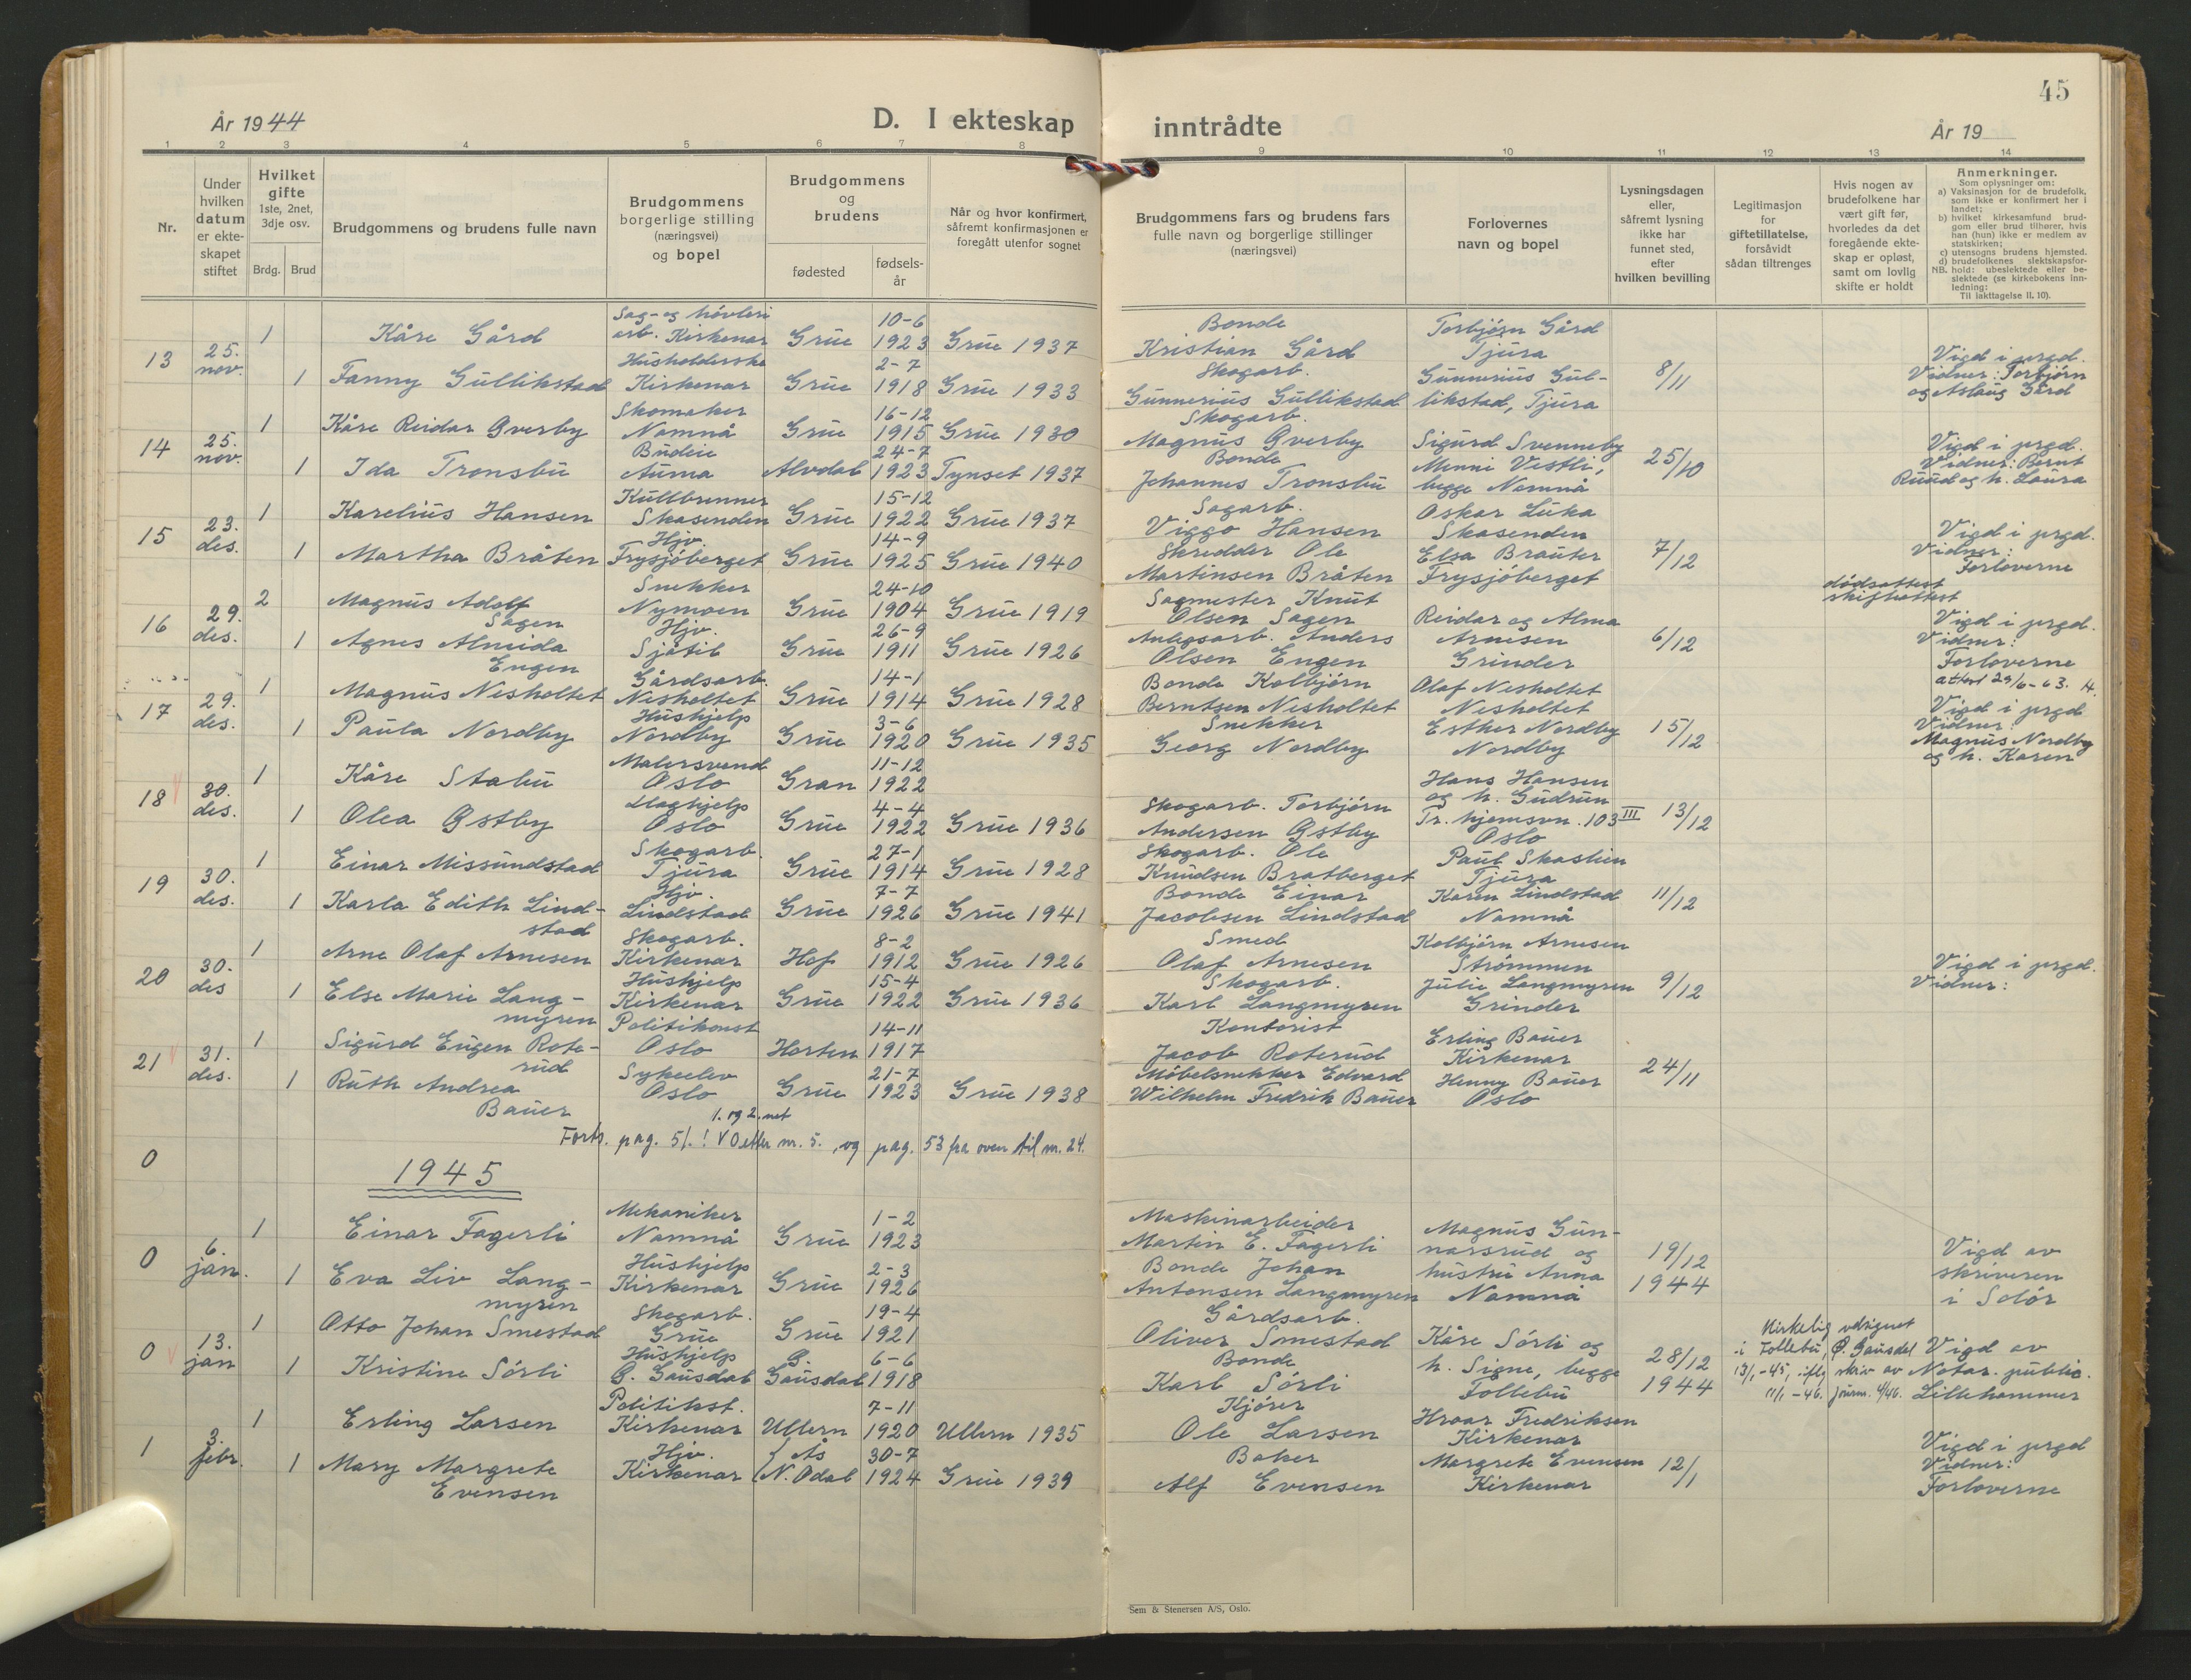 År 1944
D. I ekteskap
1 2 3 4 5 6 7 8
Nr.
Under hvilken datum er ekteskapet stiftet
Hvilket gifte 1ste, 2net, 3dje osv.
Brdg. Brud
Brudgommens og brudens fulle navn
Brudgommens borgerlige stilling (næringsvei) og bopel
Brudgommens og brudens
fødested
fødsels-år
Når og hvor konfirmert, såfremt konfirmasjonen er foregått utenfor sognet
13 25. nov.
1 Kåre Gård Sag- og høvleri arb. Kirkenær Grue 10-6 1923 Grue 1937
1 Fanny Gullikstad Husholderske Kirkenær Grue 2-7 1918 Grue 1933
14 25. nov.
1 Kåre Reidar Øverby Skomaker Namnå Grue 16-12 1915 Grue 1930
1 Ida Tronsbu Budeie Auma Alvdal 24-7 1923 Tynset 1937
15 23. des.
1 Karelius Hansen Kullbrenner Skasenden Grue 15-12 1922 Grue 1937
1 Martha Bråten Hjv. Frysjøberget Grue 14-9 1925 Grue 1940
16 29. des.
2 Magnus Adolf Sagen Snekker Nymoen Grue 24-10 1904 Grue 1919
1 Agnes Almida Engen Hjv. Sjåtil Grue 26-9 1911 Grue 1926
17 29. des.
1 Magnus Nesholtet Gårdsarb. Nesholtet Grue 14-1 1914 Grue 1928
1 Paula Nordby Hushjelp Nordby Grue 3-6 1920 Grue 1935
18 30. des.
1 Kåre Stabu Malersvend Oslo Gran 11-12 1922
1 Olea Østby Oslo Grue 4-4 1922 Grue 1936
19 30. des.
1 Einar Missundstad Skogarb. Tjura Grue 27-1 1914 Grue 1928
1 Karla Edith Lindstad Hjv. Lindstad Grue 7-7 1926 Grue 1941
20 30. des
1 Arne Olaf Arnesen Skogarb. Kirkenær Hof 8-2 1912 Grue 1926
1 Else Marie Langmyren Hushjelp Kirkenær Grue 15-4 1922 Grue 1936
21 31. des.
1 Sigurd Eugen Roterud Politikonst Oslo Horten 14-11 1917
1 Ruth Andrea Bauer Sykeelev Oslo Grue 21-7 1923 Grue 1938
1. og 2. net
0 Forts. pag. 51.! V 0 etter nr. 5. , og pag. 53 fra oven til nr. 24.
1945
0 6. jan.
1 Einar Fagerli Mekaniker Namnå Grue 1-2 1923
1 Eva Liv Langmyren Hushjelp Kirkenær Grue 2-3 1926
0 13. jan
1 Otto Johan Smestad Skogarb. Grue Grue 19-4 1921
1 Kristine Sørli Hushjelp Ø. Gausdal Ø. Gausdal 6-6 1918
1 3. febr.
1 Erling Larsen Politikst. Kirkenær Ullern 7-11 1920 Ullern 1935
1 Mary Margrete Evensen Hjv. Kirkenær Ås N. Odal 30-7 1924 Grue 1939
45
inntrådte
År 19
9 10 11 12 13 14
Brudgommens fars og brudens fars fulle navn og borgerlige stillinger (næringsvei)
Forlovernes navn og bopel
Lysningsdagen eller, såfremt lysning ikke har funnet sted, efter hvilken bevilling
Legitimasjon for giftetillatelse, forsåvidt sådan tiltrenges
Hvis nogen av brudefolkene har vært gift før, hvorledes da det foregående ekteskap er opløst, samt om lovlig skifte er holdt
Anmerkninger.
Som oplysninger om:
a) Vaksinasjon for de brudefolk, som ikke er konfirmert her i landet;
b) hvilket kirkesamfund brudgom eller brud tilhører, hvis han (hun) ikke er medlem av statskirken;
c) utensogns brudens hjemsted.
d) brudefolkenes slektskapsforhold: ubeslektede eller beslektede (se kirkebokens innledning:
NB.
Til iakttagelse II, 10).
Bonde Kristian Gård Torbjørn Gård Tjura
Skogarb. Gunnerius Gullikstad Gunnerius Gullikstad, Tjura 8/11 Vigd i prgd. Vidner: Torbjørn og Aslaug Gård
Skogarb. Magnus Øverby Sigurd Svenneby
Bonde Johannes Tronsbu Menni Vestli, begge Namnå 25/10 Vigd i prgd. Vidner: Bernt Ruud og h. Laura
Sagarb. Viggo Hansen Oskar Luka Skasenden
Skredder Ole Martinsen Bråten Elsa Brauter Frysjøberget 7/12 Vigd i prgd. Vidner: Forloverne
Sagmester Knut Olsen Sagen dødsattest skifteattest
Anlegsarb. Anders Olsen Engen Reidar og Alma Arnesen Grinder 6/12 Vigd i prgd. Vidner: Forloverne
attest 29/6-63. H.
Bonde Kolbjørn Berntsen Nesholtet Olaf Nesholtet Nesholtet
Snekker Georg Nordby Esther Nordby Nordby 15/12 Vigd i prgd Vidner: Magnus Nordby og h. Karen
Skogarb. Torbjørn Andersen Østby Hans Hansen og h. Gudrun Tr.hjemsvn. 103 III Oslo 13/12
Skogarb. Ole Knudsen Bratberget Paul Skaslien Tjura
Bonde Einar Jacobsen Lindstad Karen Lindstad Namnå 11/12
Smed Olaf Arnesen Kolbjørn Arnesen Strømmen
Skogarb. Karl Langmyren Julie Langmyren Grinder 9/12 Vigd i prgd. Vidner:
Kontorist Jacob Roterud Erling Bauer Kirkenær
Møbelsnekker Edvard Wilhelm Fredrik Bauer Henny Bauer Oslo 24/11
Maskinarbeider Martin E. Fagerli Magnus Gunnarsrud og hustru Anna Namnå 19/12 1944 Vigd av skriveren i Solør
Bonde Johan Antonsen Langmyren
Gårdsarb. Oliver Smestad Kåre Sørli og h. Signe, begge Follebu 28/12 1944
Kirkelig velsignet i Follebu, Ø. Gausdal 13/1-45, iflg. skriv av 11/1-46. Journ. 4/46.
Vigd av Notar. public. Lillehammer
Bonde Karl Sørli
Kjører Ole Larsen Hroar Fredriksen Kirkenær
Baker Alf Evensen Margrete Evensen Kirkenær 12/1 Vigd i prgd Vidner: Forloverne
Sem & Stenersen A/S, Oslo.